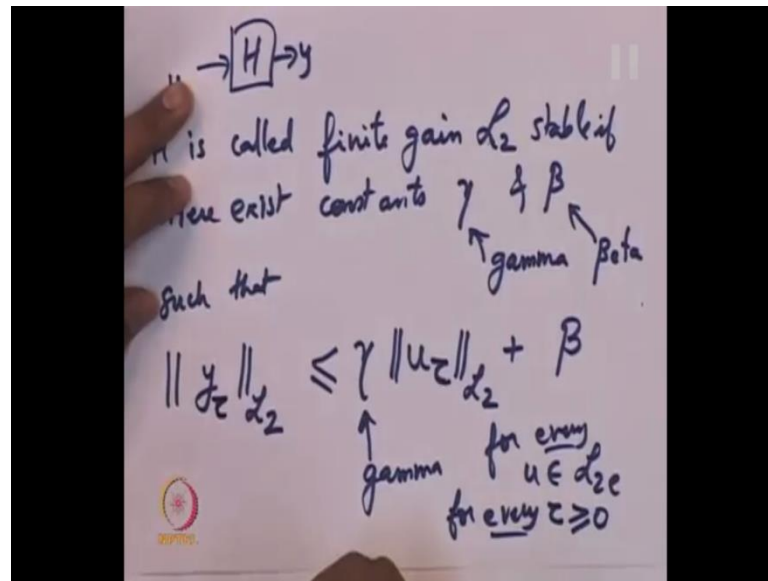 u → H → y
H is called finite gain ℒ₂ stable if
there exist constants γ & β
gamma Beta
such that
‖y_τ‖_ℒ₂ ≤ γ ‖u_τ‖_ℒ₂ + β
gamma
for every
u ∈ ℒ₂e
for every τ ≥ 0
NPTEL